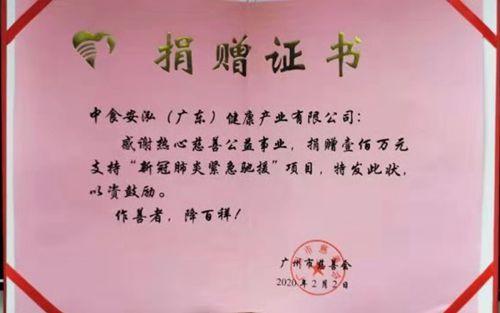 捐赠证书
中食安泓（广东）健康产业有限公司：
感谢热心慈善公益事业，捐赠壹佰万元
支持“新冠肺炎紧急驰援”项目，特发此状，
以资鼓励。
作善者，降百祥！
广州市慈善会
2020年2月2日